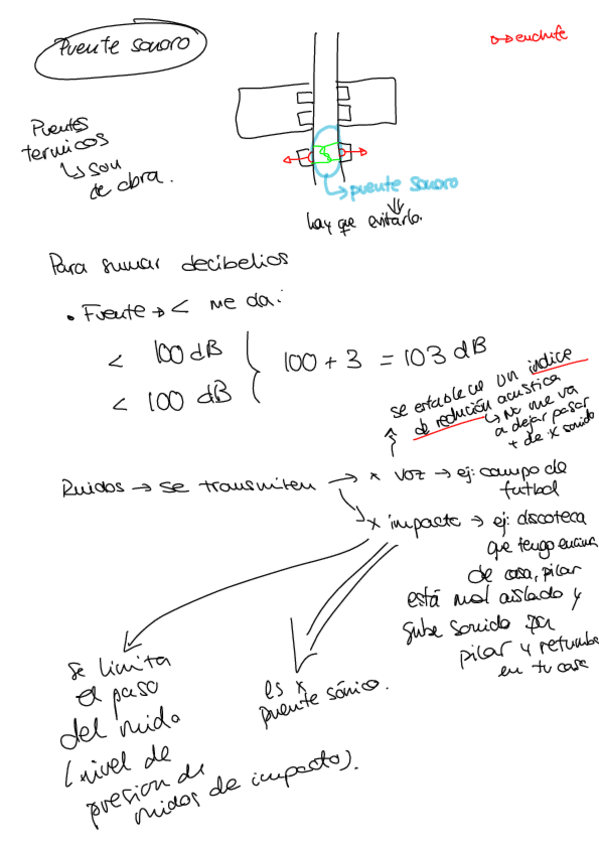 Puente sonoro
→ enchufe
Puentes
termicos
↳ son
de obra.
↳ puente sonoro
hay que evitarlo.
Para sumar decibelios
• Fuente → < me da:
< 100 dB
< 100 dB
100 + 3 = 103 dB
se establece un índice
de redución acustica
↳ No me va
a dejar pasar
+ de x sonido
Ruidos → se transmiten → x voz → ej: campo de
futbol
x impacto → ej: discoteca
que tengo encima
de casa, pilar
está mal aislado y
sube sonido por
pilar y retumba
en tu casa
se limita
el paso
del ruido
(nivel de
presion de
ruidos de impacto).
es x
puente sónico.